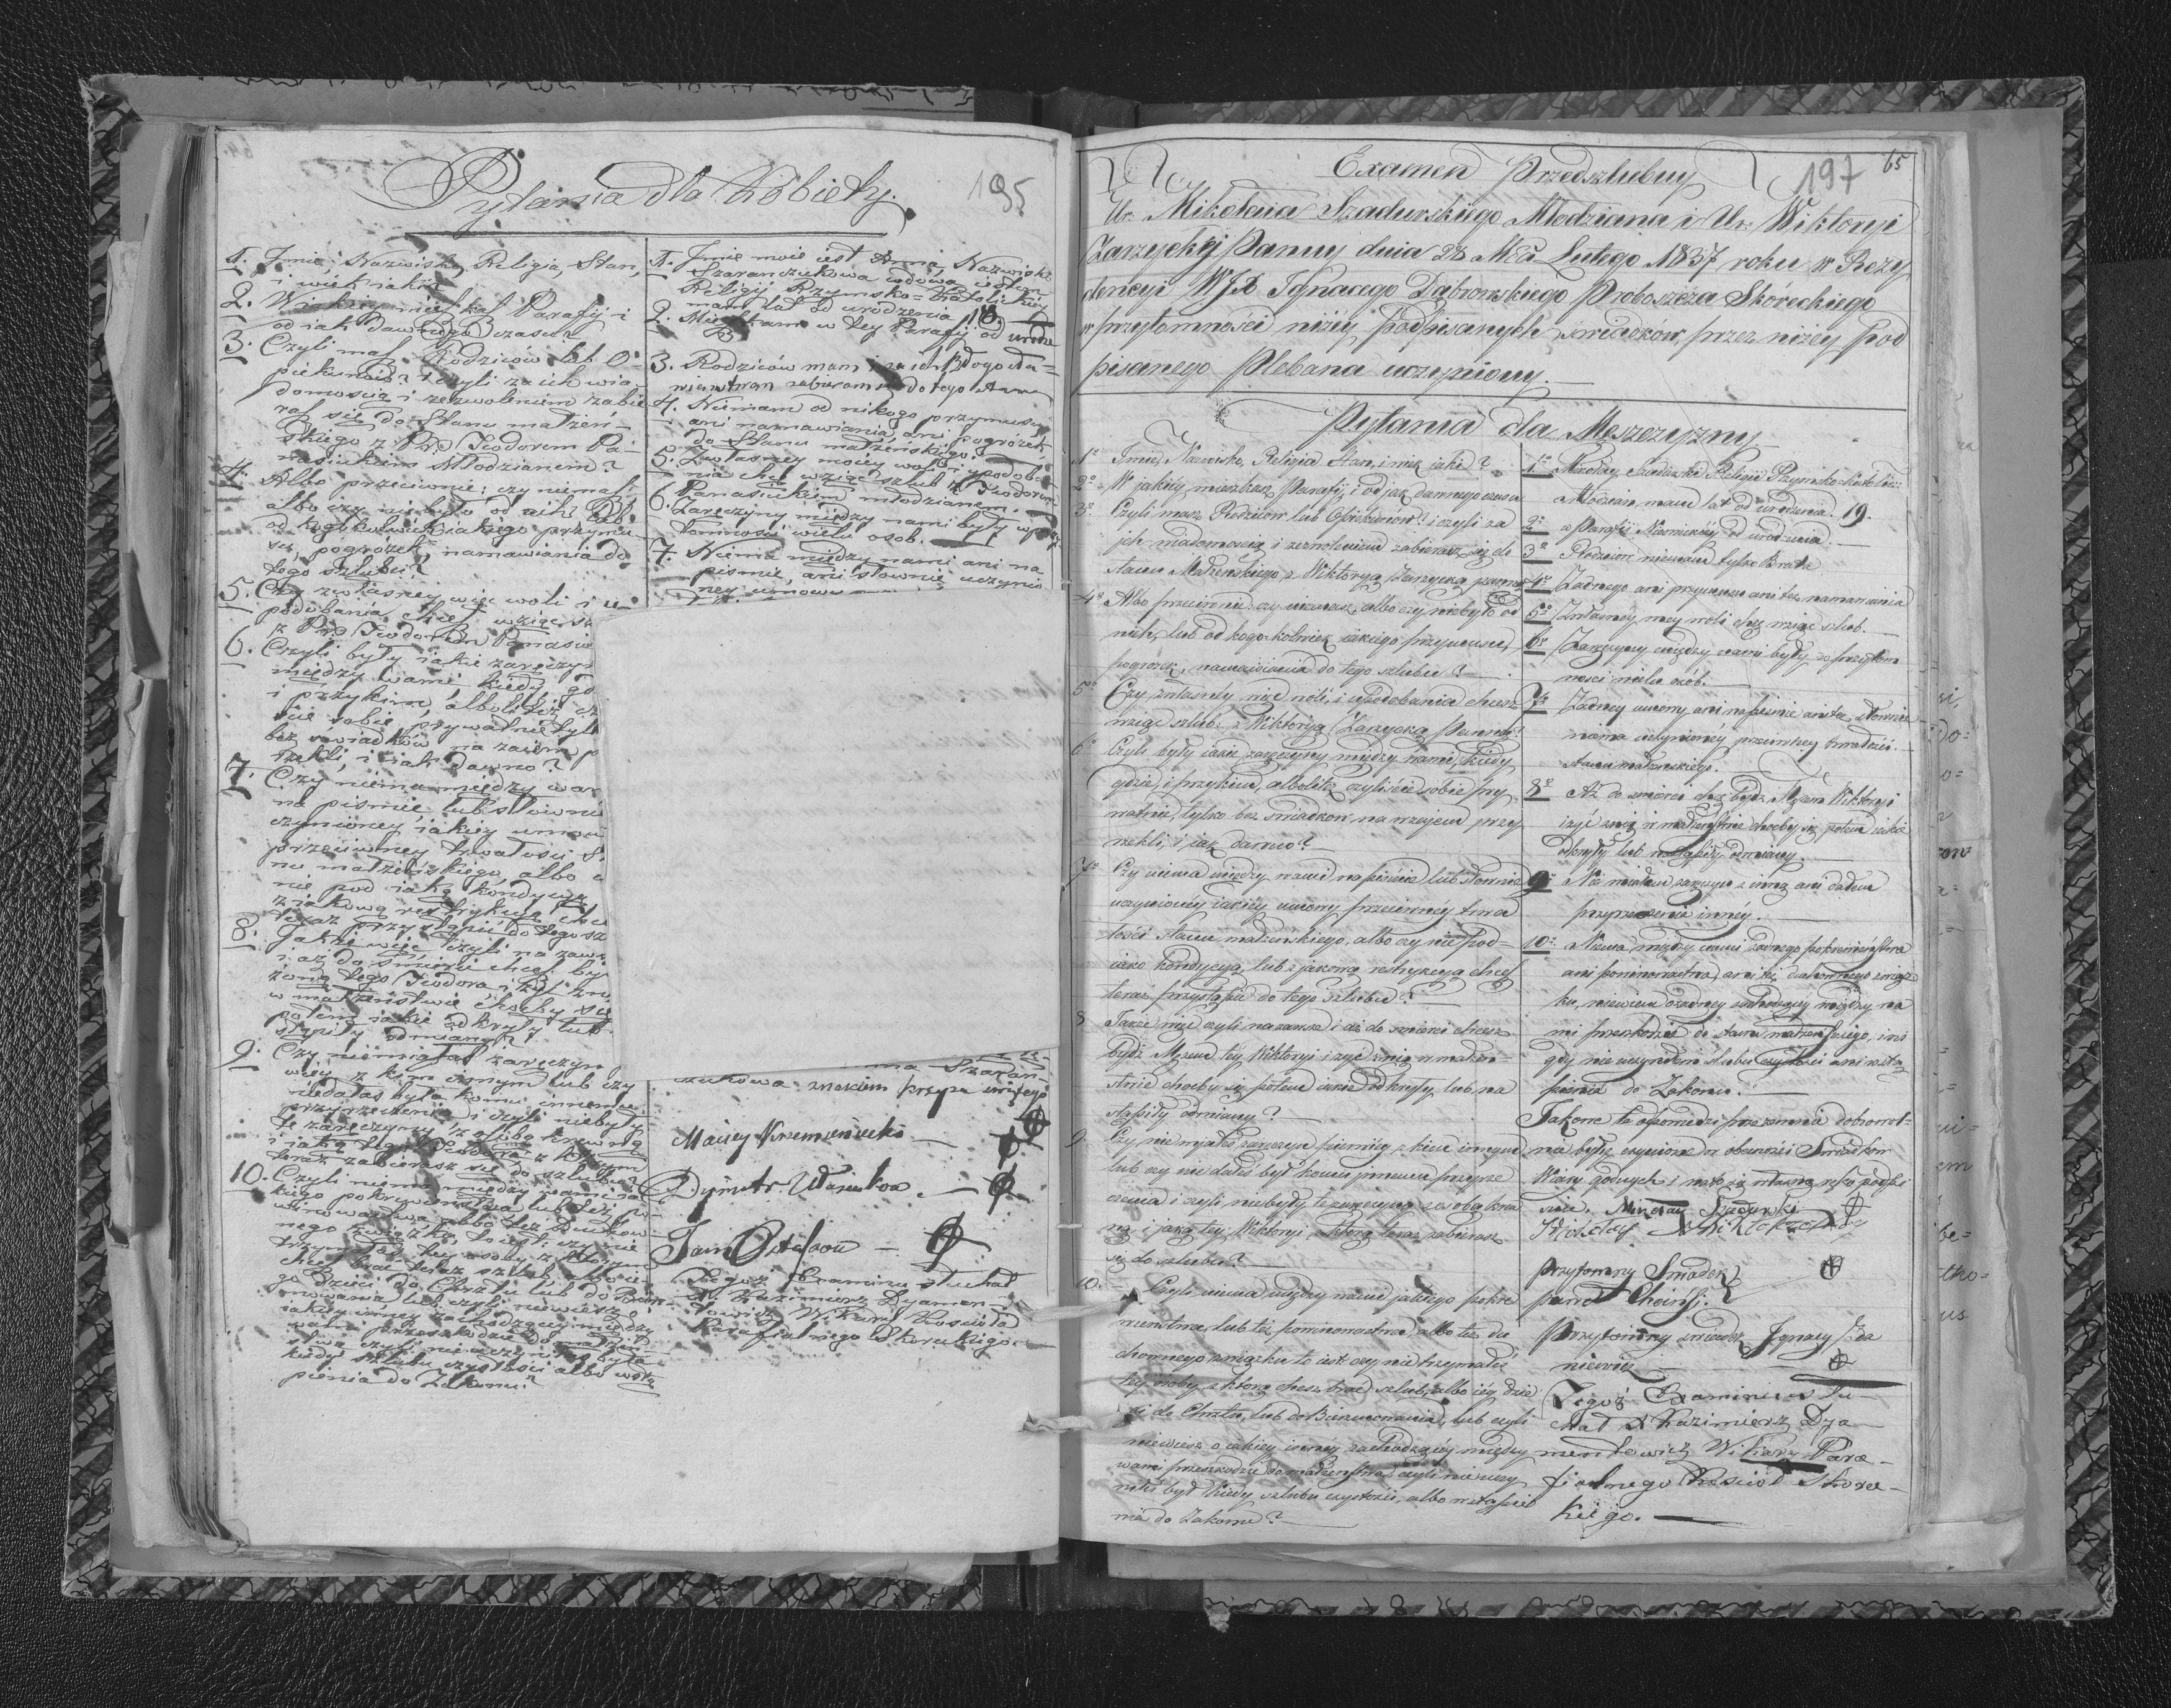 Pytania dla Kobiety.
195
1. Imie, Nazwisko, Religia, Stan,
i wiek iaki?
2. W iakiey mieszkasz Parafij i
od iak dawnego czasu?
3. Czyli masz Rodziców lub O-
piekunów? i czyli za ich wia-
domością i zezwoleniem zabie
rasz się do Stanu małżeń-
skiego z Teodorem Pa-
nasiukiem Młodzianem?
4. Albo przeciwnie: czy niemasz
albo czy niebyło od nich lub
od kogokolwiek iakiego przymu-
su, pogróżek, namawiania do
tego szlubu?
5. Czy zwłasney więc woli i u-
podobania chcesz wziąć sz
z Teodorem Panasiu
6. Czyli były iakie zaręczyn
między wami kiedy, gd
i przykim, albolitéż cz
ście sobie prywatnie tyl
bez świadków na zaiem p
rzekli, i iak dawno?
7. Czy niema między wam
na pismie lub słownie
czynioney iakiey umow
przeciwney trwałości S
nu małżeńskiego, albo c
nie pod iaką kondycyą
z iakową restrykcyą chc
teraz przystąpić do tego sz
8. Jakże więc czyli na zaws
i aż do śmierci chcesz by
żoną tego Teodora i żyć zni
w małżeństwie choćby się
potem iakie odkryły lub
stąpiły odmiany?
9. Czy niemiałaś zaręczyn
wiey z kim innym lub czy
niedałaś była komu innemu
przyrzeczenia i czyli niebyły
te zaręczyny z osobą krewną
i iaką tego Teodora z którym
teraz zabierasz się do szlubu?
10. Czyli niema między wami ia
kiego pokrewieństwa lub też po-
winowactwa albo też Duchow-
nego związku, to iest: czy nie
trzymałaś tey osoby z którym
chcesz brać teraz szlub, albo ie-
go dzieci do Chrztu lub do Bierz-
mowania lub czyli niewiesz o
iakiey inney zachodzącey między
wami przeszkodzie do małżeń-
stwa czyli nieuczyniłaś była
kiedy szlubu czystości albo wstą
pienia do Zakonu?
1. Imie moie iest Anna, Nazwisko
Szaranczukowa wdowa iestem
Religij Rzymsko-Katolickiey
mam lat od urodzenia 18.
2. Mieszkam w tey Parafij od urodze
3. Rodziców mam i za ich
zabieram się do tego Stanu
4. Niemam od nikogo przymusu
ani namawiania ani pogróżek
do Stanu małżeńskiego.
5. Zwłasney moiey woli i upodoba-
nia chcę wziąć szlub z Teodorem
Panasiukiem młodzianem.
6. Zaręczyny między nami były w przy
tomności wielu osob.
7. Niema między nami ani na
pismie, ani słownie uczynio
ney umowy
na Szaran-
czukowa znakiem krzyża świętego
Maciey Krzemieniecki
Dymetr Wasiuk
Jan Ostasow
Tegoż Examinu słuchał
X Kazimierz Dyamen-
towicz Wikary Kościoła
Parafialnego Skoreckiego.
197 65
Examen Przedszlubny
Ur. Mikołaia Szadurskiego Młodziana i Ur. Wiktoryi
Zarzyckiey Panny dnia 28 Mca Lutego 1837 roku w Rezy
dencyi WJX Ignacego Dąbrowskiego Proboszcza Skóreckiego
w przytomności niżey podpisanych świadków, przez niżey pod
pisanego Plebana uczyniony.
Pytania dla Meszczyzny
1o Imie, Nazwisko, Religia Stan, i wiek iaki?
2o W jakiey mieszkasz Parafij i od jak dawnego czasu
3o Czyli masz Rodziców lub Opiekunów? i czyli za
jch wiadomością i zezwoleniem zabierasz się do
stanu Małżeńskiego z Wiktoryą Zarzycką panną
4o Albo przeciwnie: czy niemasz, albo czy niebyło od
nich, lub od kogokolwiek iakiego przymusu,
pogrożek, namawiania do tego szlubu?
5o Czy zwłasnéy więc woli, i upodobania chcesz
wziąć szlub z Wiktoryą Zarzycką Panną?
6o Czyli były iakie zaręczyny między wami, kiedy
gdzie, i przykim, albolitéż czyliście sobie pry
watnie, tylko bez świadkow na wzajem przy
rzekli, i jak dawno?
7o Czy niema między wami na piśmie lub słownie
uczynionéy iakiéy umowy przeciwnéy trwa
łości stanu małżeńskiego, albo czy nie pod-
iako kondycyą, lub z jakową restrykcyą chcesz
teraz przystąpić do tego szlubu?
8 Jakże więc czyli nazawsze i aż do śmierci chcesz
bydź Mężem tey Wiktoryi i żyć znią w małżeń-
stwie choćby się potem iakie odkryły, lub na
stąpiły odmiany?
9. Czy nie miałeś zaręczyn pierwiéy z kim innym
lub czy nie dałeś był komu jnnemu przyrze
czenia i czyli niebyły te zaręczyny z osobą kre
ną i jaką tey Wiktoryi z którą teraz zabierasz
się do szlubu?
10. Czyli niema między wami jakiego pokre
wieństwa, lub téż powinowactwa, albo téż du
chownego związku to iest: czy nie trzymałeś
tey osoby z którą chcesz brać szlub, albo iéy dzie
ci do Chrztu, lub do Bierzmowania, lub czyli
niewiesz o iakiey innéy zachodzącéy między
wami przeszkodzie do małżeństwa, czyli nie uczy
niłeś był kiedy szlubu czystości, albo wstąpie
nia do Zakonu?
1o Mikołay Szadurski Religii Rzymsko-katolic:
Młodzian mam lat od urodzenia 19.
2o w Parafii od urodzenia.
3o Rodziców niemam tylko Brata
4o Żadnego ani przymusu ani też namawiania
5o Zwłasnéy mey woli chcę wziąć szlub.
6o Zaręczyny między nami były w przytom
ności wielu osób.
7o Żadney umowy ani na piśmie ani też słownie
niema uczynioney przeciwney trwałości
stanu małżeńskiego.
8o Aż do śmierci chcę bydź Mężem Wiktoryi
i żyć znią w małżeństwie choćby się potem iakie
odkryły lub nastąpiły odmiany.
9o Nie miałem zaręczyn z inną ani dałem
przyrzeczenia innéy.
10o Niema między nami żadnego pokrewieństwa
ani powinowactwa, ani też duchownego związ
ku, niewiem o żadney zachodzącey między na
mi przeszkodzie do stanu małżeńskiego, ani
gdy nie uczyniłem szlubu czystości ani wstą
pienia do Zakonu.
Jakowe te odpowiedzi przezemnie dobrowol-
nie były uczynione w obecności Swiadków
Wiary godnych i na to się własną ręką podpi
suie. Mikołay Szadurski
Przytomny Swiadek
Przytomny swiadek Ignacy Da
niewicz
Tegoż Examinu słu-
chał X Kazimierz Dya
mentowicz Wikary Para-
fialnego Kościoł Skorec-
kiego.